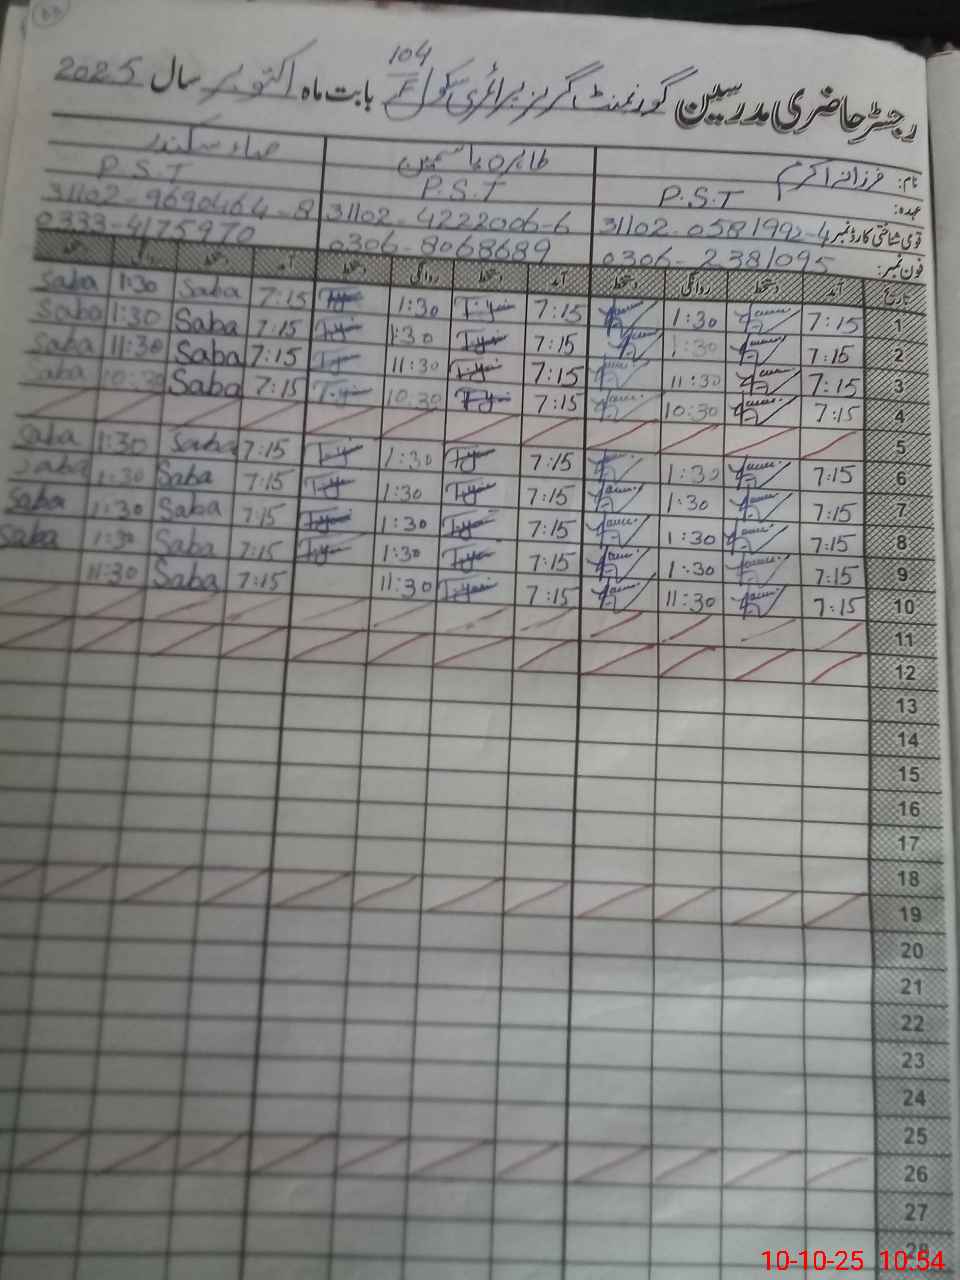 رجسٹر حاضری مدرسین گورنمنٹ گرلز پرائمری سکول 104 بابت ماہ اکتوبر سال 2025
نام: فرزانہ اکرم طاہرہ یاسمین صباء سکندر
عہدہ: P.S.T P.S.T P.S.T
قومی شناختی کارڈ نمبر 31102-0581992-4 31102-4222006-6 31102-9690464-8
فون نمبر: 0306-2381095 0306-8068689 0333-4175970
تاریخ آمد دستخط روانگی دستخط آمد دستخط روانگی دستخط آمد دستخط روانگی دستخط
1 7:15 1:30 7:15 1:30 7:15 Saba 1:30 Saba
2 7:15 1:30 7:15 1:30 7:15 Saba 1:30 Saba
3 7:15 11:30 7:15 11:30 7:15 Saba 11:30 Saba
4 7:15 10:30 7:15 10:30 7:15 Saba 10:30 Saba
5
6 7:15 1:30 7:15 1:30 7:15 Saba 1:30 Saba
7 7:15 1:30 7:15 1:30 7:15 Saba 1:30 Saba
8 7:15 1:30 7:15 1:30 7:15 Saba 1:30 Saba
9 7:15 1:30 7:15 1:30 7:15 Saba 1:30 Saba
10 7:15 11:30 7:15 11:30 7:15 Saba 11:30
11
12
13
14
15
16
17
18
19
20
21
22
23
24
25
26
27
28
10-10-25 10:54